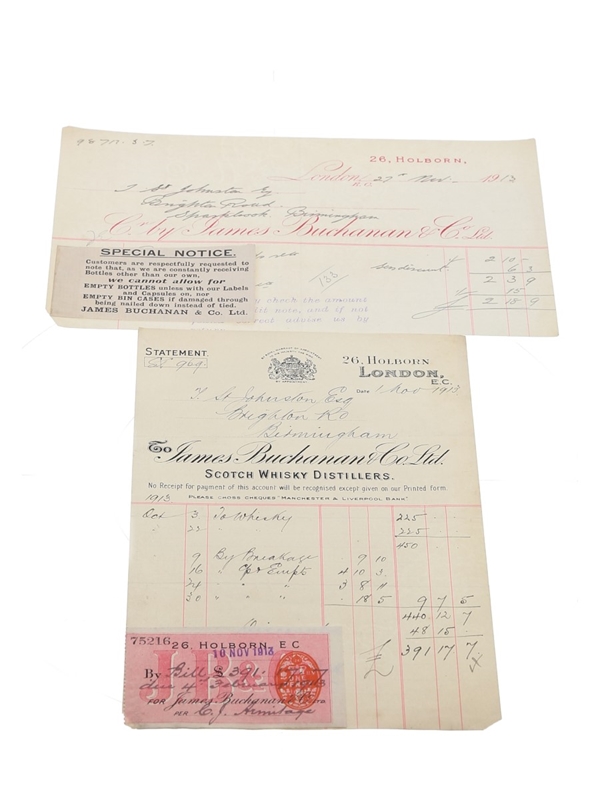 26, HOLBORN,
London E.C. 27th Nov. 1913
T St Johnston Esq
Brighton Road
Sparkbrook Birmingham
Cr. by James Buchanan & Co. Ltd.
SPECIAL NOTICE.
Customers are respectfully requested to
note that, as we are constantly receiving
Bottles other than our own,
we cannot allow for
EMPTY BOTTLES unless with our Labels
and Capsules on, nor
EMPTY BIN CASES if damaged through
being nailed down instead of tied.
JAMES BUCHANAN & Co. Ltd.
2 10 -
6 3
2 3 9
15
£ 2 18 9
133
check the amount
note, and if not
correct advise us by
STATEMENT.
26, HOLBORN
LONDON,
E.C.
Date 1 Nov 1913
T St Johnston Esq
Brighton Rd
Birmingham
To James Buchanan & Co. Ltd.
SCOTCH WHISKY DISTILLERS.
No Receipt for payment of this account will be recognised except given on our Printed form.
1913 PLEASE CROSS CHEQUES "MANCHESTER & LIVERPOOL BANK"
Oct 3 To Whisky 225 -
22 " 225 -
450
9 By Breakage 9 10
16 " & Empt 4 10 3
24 " " 3 8 11
30 " " 18 5 9 7 5
440 12 7
48 15 -
£ 391 17 7
75216 26, HOLBORN, E.C
10 NOV 1913
By Bill £391
due 4th February
FOR James Buchanan & Co. LTD
PER C. J. Armitage